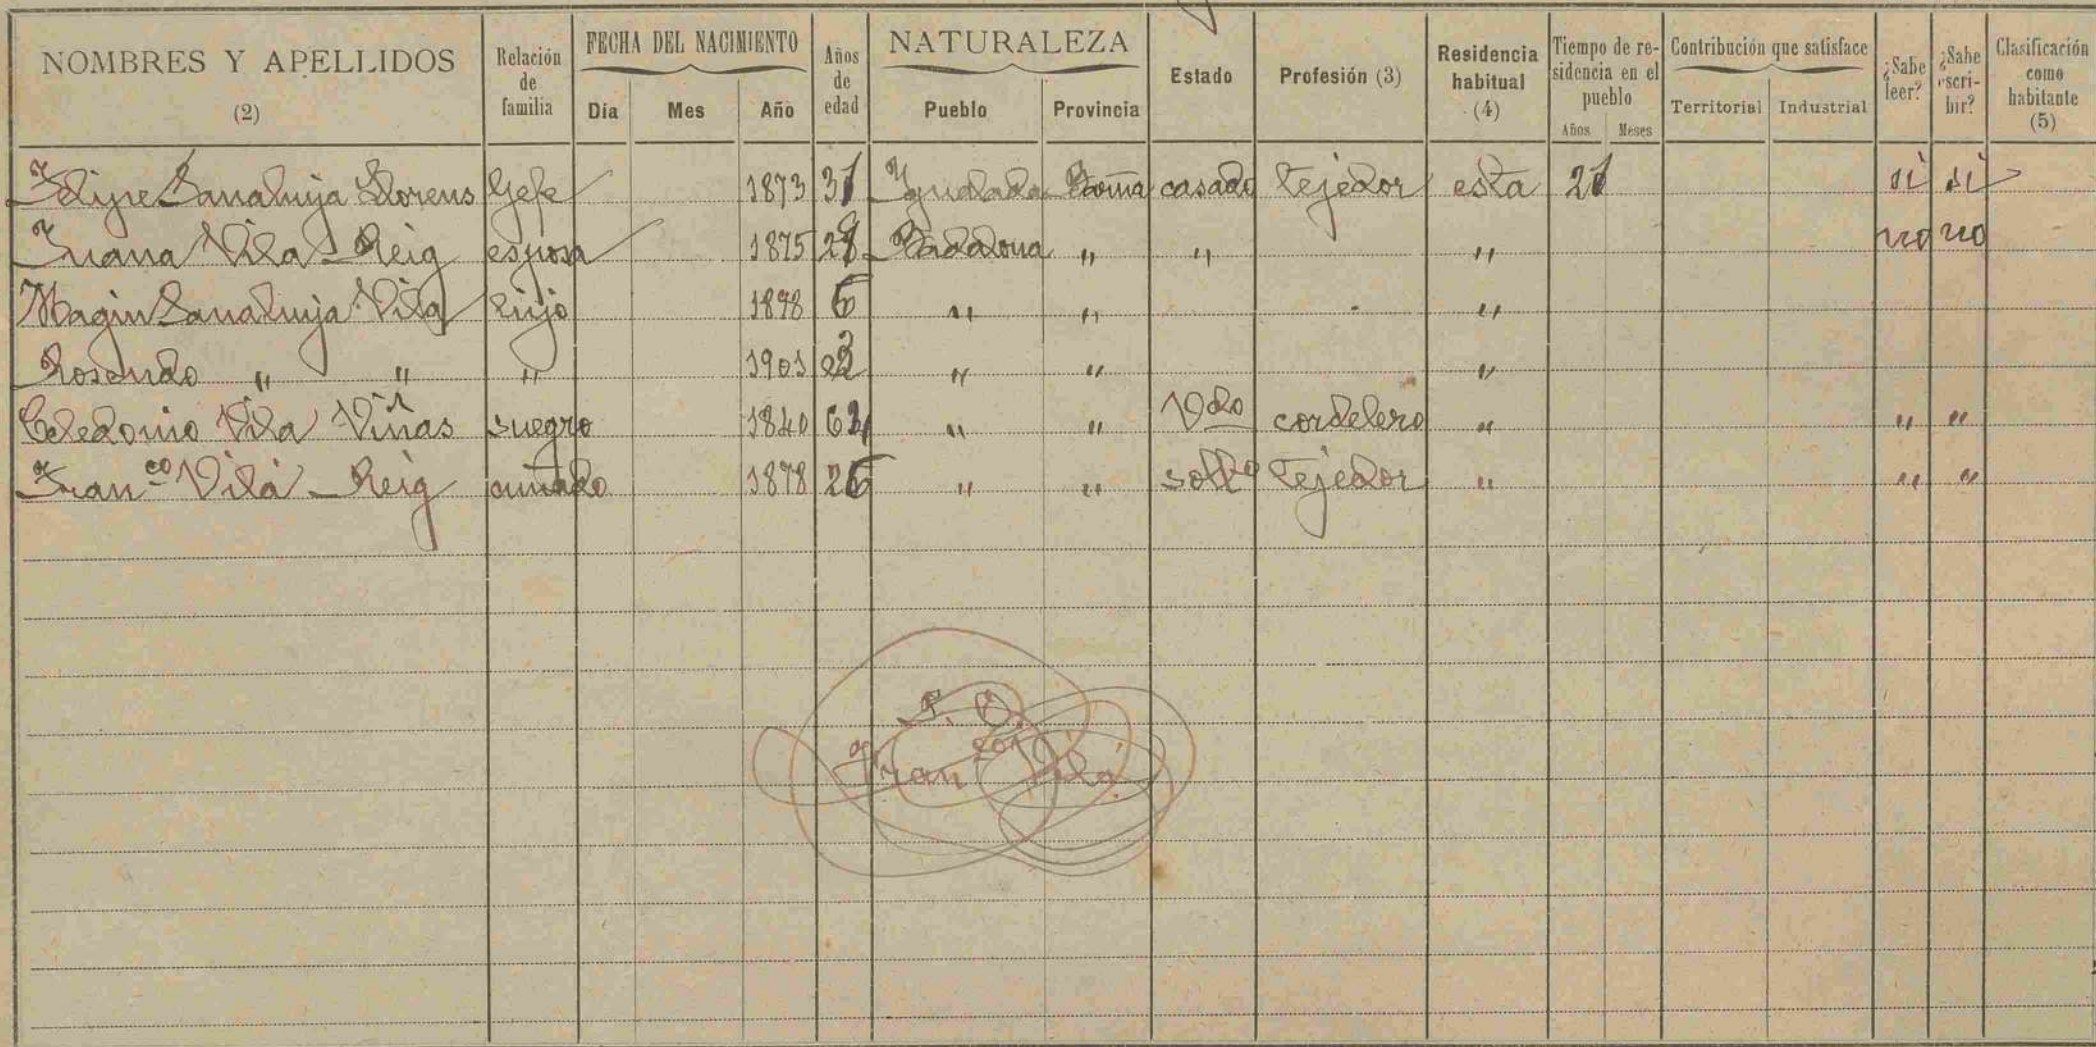 NOMBRES Y APELLIDOS (2) Relación de familia FECHA DEL NACIMIENTO Día Mes Año Años de edad NATURALEZA Pueblo Provincia Estado Profesión (3) Residencia habitual (4) Tiempo de residencia en el pueblo Años Meses Contribución que satisface Territorial Industrial ¿Sabe leer? ¿Sabe escribir? Clasificación como habitante (5)
Felipe Sanahuja Llorens Gefe 1873 31 Ygualada Barna casado tejedor esta 21 si si
Juana Vila Reig esposa 1875 29 Badalona " " " no no
Magin Sanahuja Vila hijo 1898 6 " " "
Rosendo " " " 1901 3 " " "
Celedonio Vila Viñas suegro 1840 64 " " Vdo cordelero " " "
Franco Vilá Reig cuñado 1878 26 " " solto tejedor " " "
P. O.
Franco Vilá